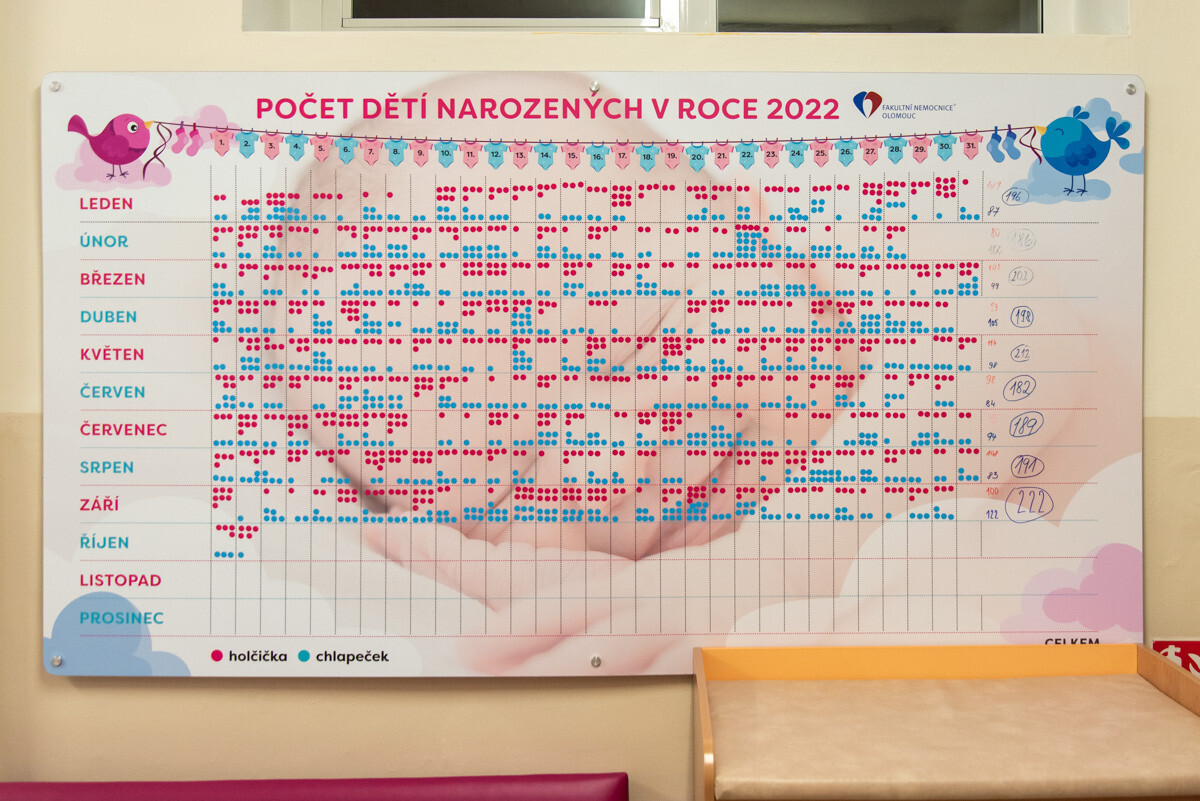 POČET DĚTÍ NAROZENÝCH V ROCE 2022
FAKULTNÍ NEMOCNICE
OLOMOUC
1. 2. 3. 4. 5. 6. 7. 8. 9. 10. 11. 12. 13. 14. 15. 16. 17. 18. 19. 20. 21. 22. 23. 24. 25. 26. 27. 28. 29. 30. 31.
LEDEN 196
87
ÚNOR 80 186
BŘEZEN 202
99
DUBEN 198
105
KVĚTEN 114 212
98
ČERVEN 98 182
84
ČERVENEC 189
94
SRPEN 108 191
83
ZÁŘÍ 100 222
122
ŘÍJEN
LISTOPAD
PROSINEC
CELKEM
holčička chlapeček